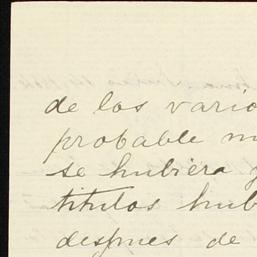 de los vario
probable m
se hubiera
titulos hub
despues de